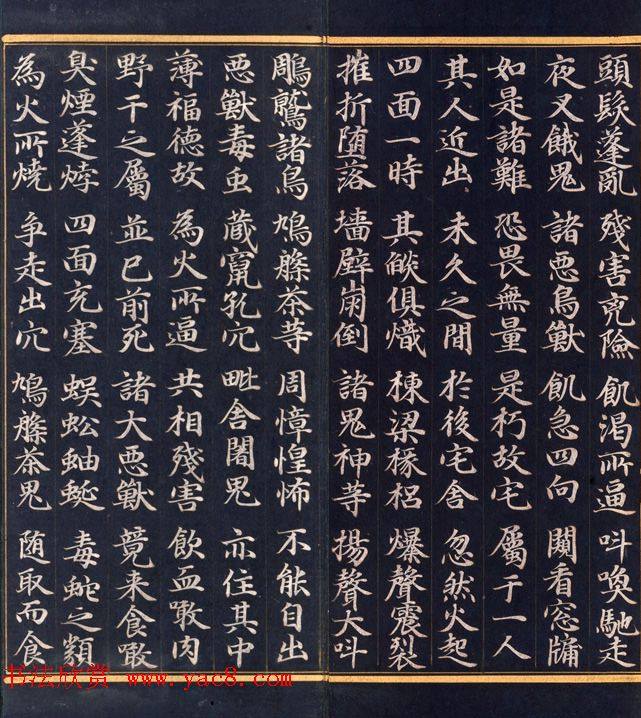 頭髮蓬亂 殘害兇險 飢渴所逼 叫喚馳走
夜叉餓鬼 諸惡鳥獸 飢急四向 闚看窓牖
如是諸難 恐畏無量 是朽故宅 屬于一人
其人近出 未久之間 於後宅舍 忽然火起
四面一時 其燄俱熾 棟梁椽梠 爆聲震裂
摧折墮落 墻壁崩倒 諸鬼神等 揚聲大叫
鵰鷲諸鳥 鳩槃荼等 周慞惶怖 不能自出
惡獸毒虫 藏竄孔穴 毗舍闍鬼 亦住其中
薄福德故 為火所逼 共相殘害 飲血噉肉
野干之屬 並已前死 諸大惡獸 競来食噉
臭煙蓬㶿 四面充塞 蜈蚣蚰蜒 毒蛇之類
為火所燒 争走出穴 鳩槃荼鬼 随取而食
书法欣赏 www.yac8.com